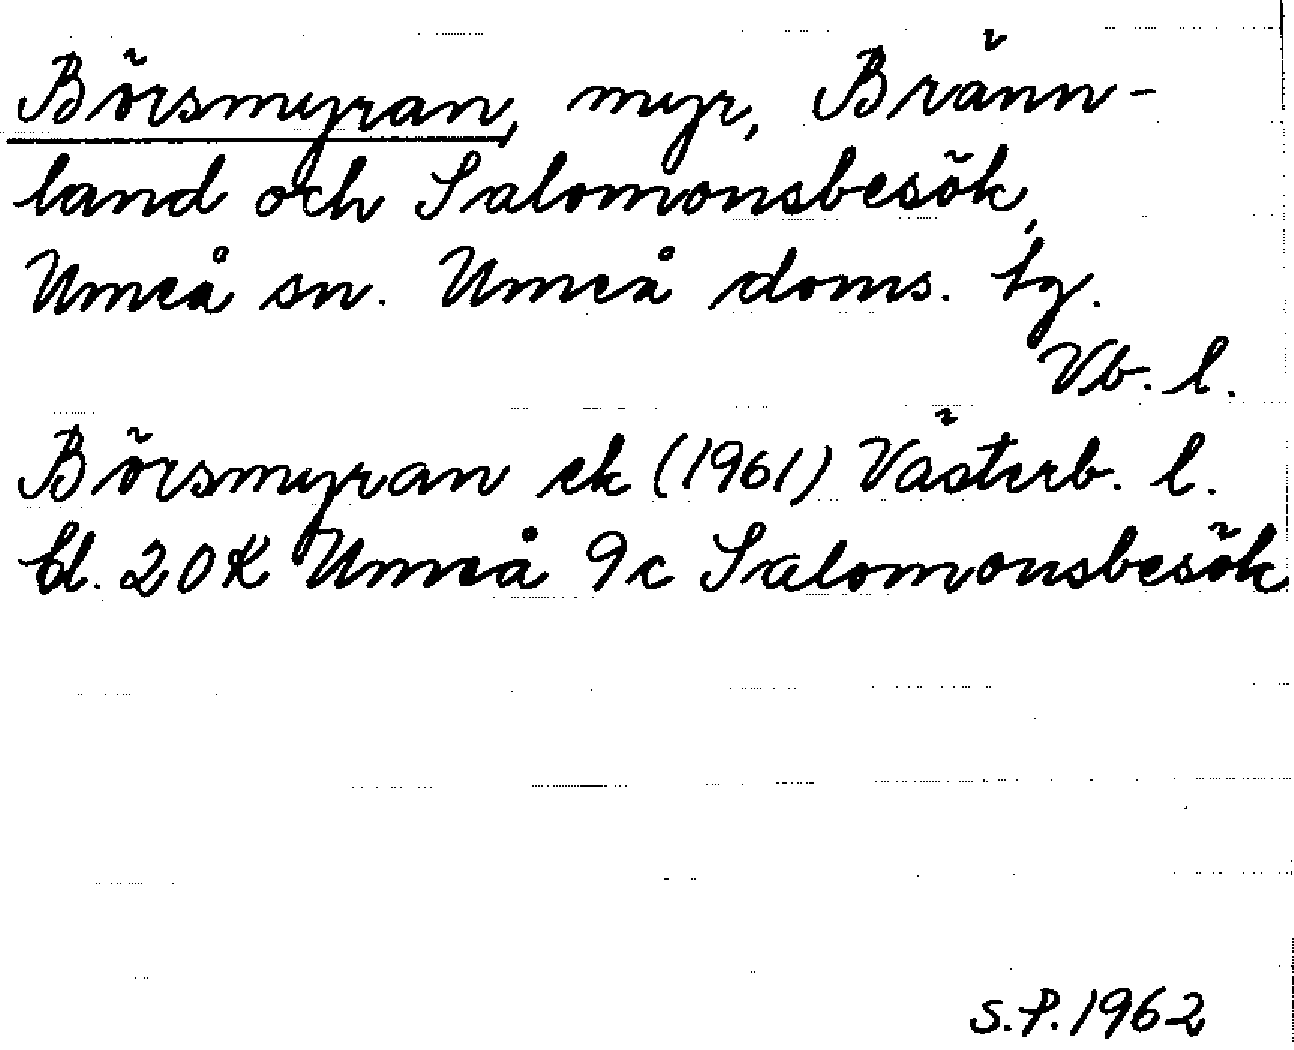 Börsmyran, myr, Bränn-
land och Salomonsbesök,
Umeå sn. Umeå doms. tg.
Vb. l.
Börsmyran ek (1961) Västerb. l.
bl. 20K Umeå 9c Salomonsbesök
S.P. 1962